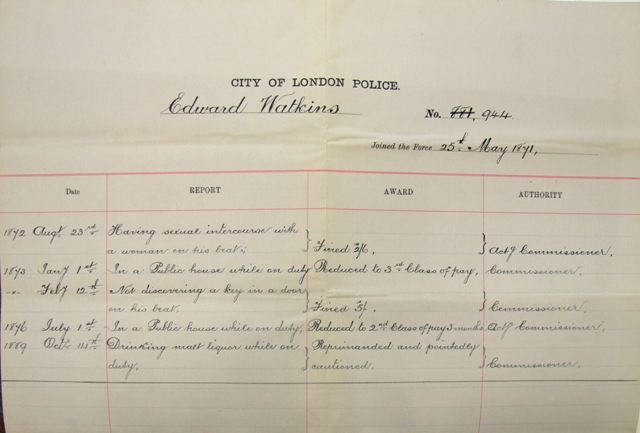 CITY OF LONDON POLICE.
Edward Watkins
No. 881, 944.
Joined the Force 25th May 1871,
Date REPORT AWARD AUTHORITY
1872 Augt 23rd Having sexual intercourse with
a woman on his beat; Fined 2/6, Actg Commissioner,
1873 Jany 1st In a Public house while on duty Reduced to 3rd Class of pay, Commissioner,
-"- Feby 12th Not discovering a key in a door
on his beat, Fined 5/-, Commissioner,
1876 July 1st In a Public house while on duty, Reduced to 2nd Class of pay 3 months Actg Commissioner,
1889 Octr Drinking malt liquor while on Reprimanded and pointedly
duty, cautioned, Commissioner,